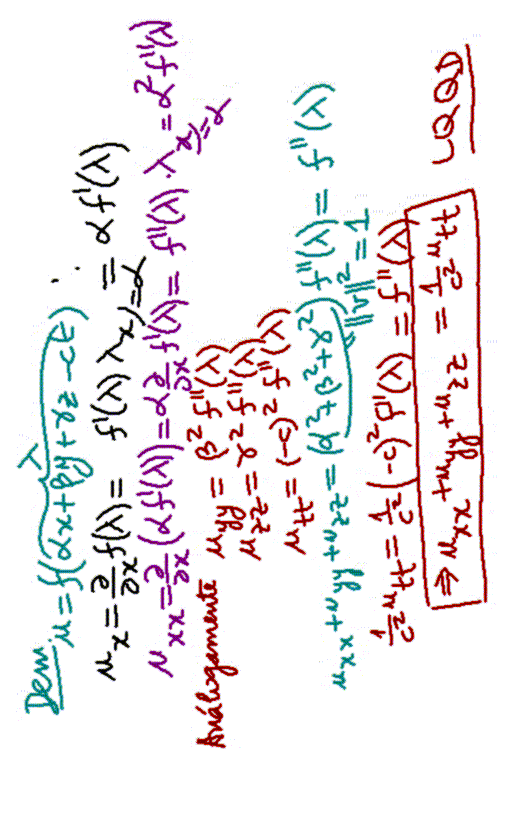 Dem. u = f(αx+βy+γz-ct) λ
u_x = ∂/∂x f(λ) = f'(λ) λ_x) = α = α f'(λ)
u_xx = ∂/∂x (α f'(λ)) = α ∂/∂x f'(λ) = f''(λ) · λ_x) = α = α² f''(λ)
Análogamente u_yy = β² f''(λ)
u_zz = γ² f''(λ)
u_tt = (-c)² f''(λ)
u_xx + u_yy + u_zz = (α²+β²+γ²) f''(λ) = f''(λ)
"||v||² = 1
1/c² u_tt = 1/c² (-c)² f''(λ) = f''(λ)
⇒ u_xx + u_yy + u_zz = 1/c² u_tt LQQD